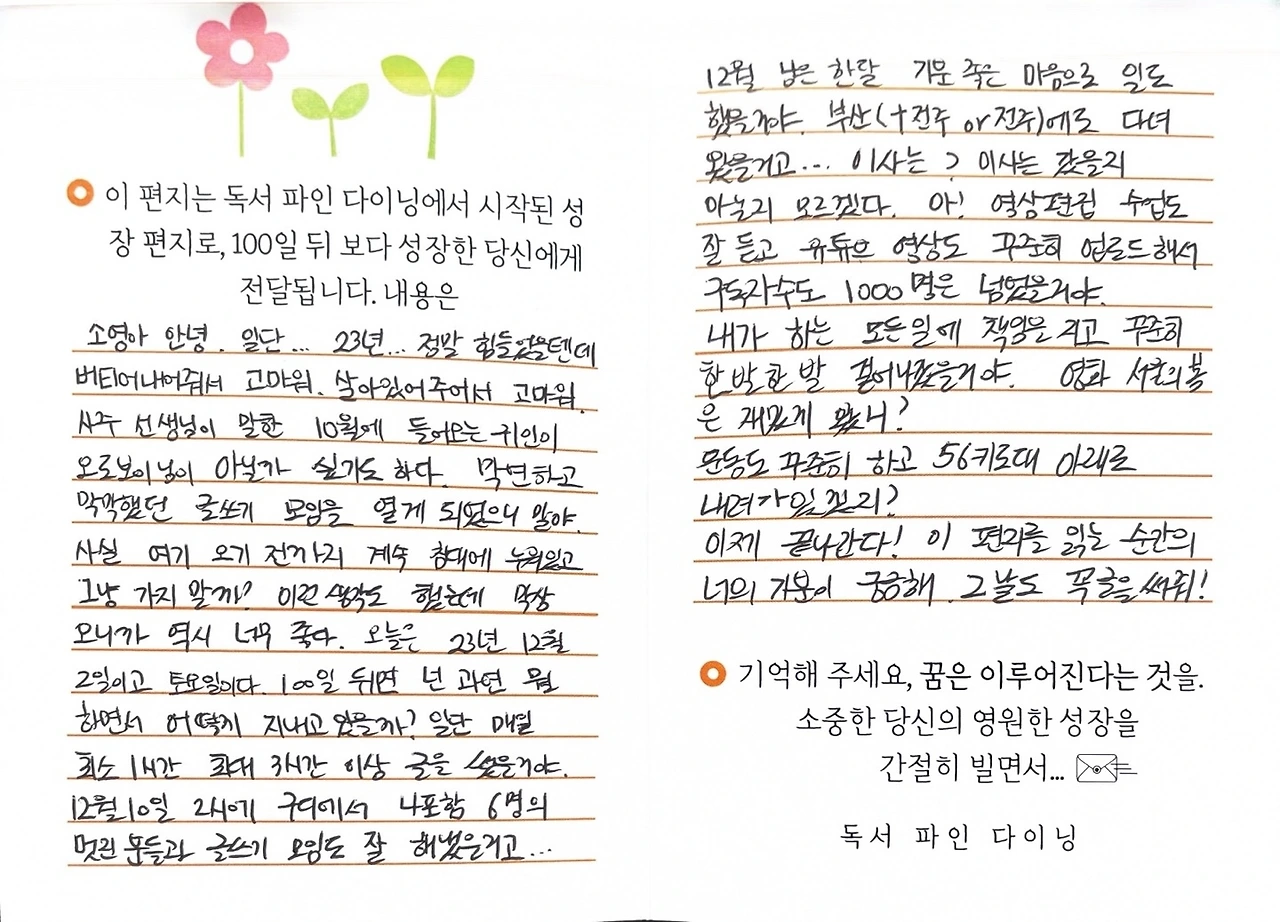 이 편지는 독서 파인 다이닝에서 시작된 성
장 편지로, 100일 뒤 보다 성장한 당신에게
전달됩니다. 내용은
소영아 안녕. 일단... 23년... 정말 힘들었을텐데
버티어내어줘서 고마워. 살아있어주어서 고마워.
사주 선생님이 말한 10월에 들어오는 귀인이
오로보이님이 아닐까 싶기도 하다. 막연하고
막막했던 글쓰기 모임을 열게 되었으니 말야.
사실 여기 오기 전까지 계속 침대에 누워있고
그냥 가지 말까? 이런 생각도 했는데 막상
오니까 역시 너무 좋다. 오늘은 23년 12월
2일이고 토요일이다. 100일 뒤면 넌 과연 뭘
하면서 어떻게 지내고 있을까? 일단 매일
최소 1시간 최대 3시간 이상 글을 썼을거야.
12월 10일 2시에 구디에서 나포함 6명의
멋진 분들과 글쓰기 모임도 잘 해냈을거고...
12월 남은 한달 기분 죽은 마음으로 일도
했을거야. 부산(+전주 or 전주)에도 다녀
왔을거고... 이사는? 이사는 갔을지
아닐지 모르겠다. 아! 영상편집 수업도
잘 듣고 유튜브 영상도 꾸준히 업로드해서
구독자수도 1000명은 넘었을거야.
내가 하는 모든일에 책임을 지고 꾸준히
한 발 한 발 걸어나갔을거야. 영화 서울의 봄
은 재밌게 봤니?
운동도 꾸준히 하고 56키로대 아래로
내려가있겠지?
이제 끝나간다! 이 편지를 읽는 순간의
너의 기분이 궁금해. 그날도 꼭 글을 써줘!
기억해 주세요, 꿈은 이루어진다는 것을.
소중한 당신의 영원한 성장을
간절히 빌면서...
독서 파인 다이닝